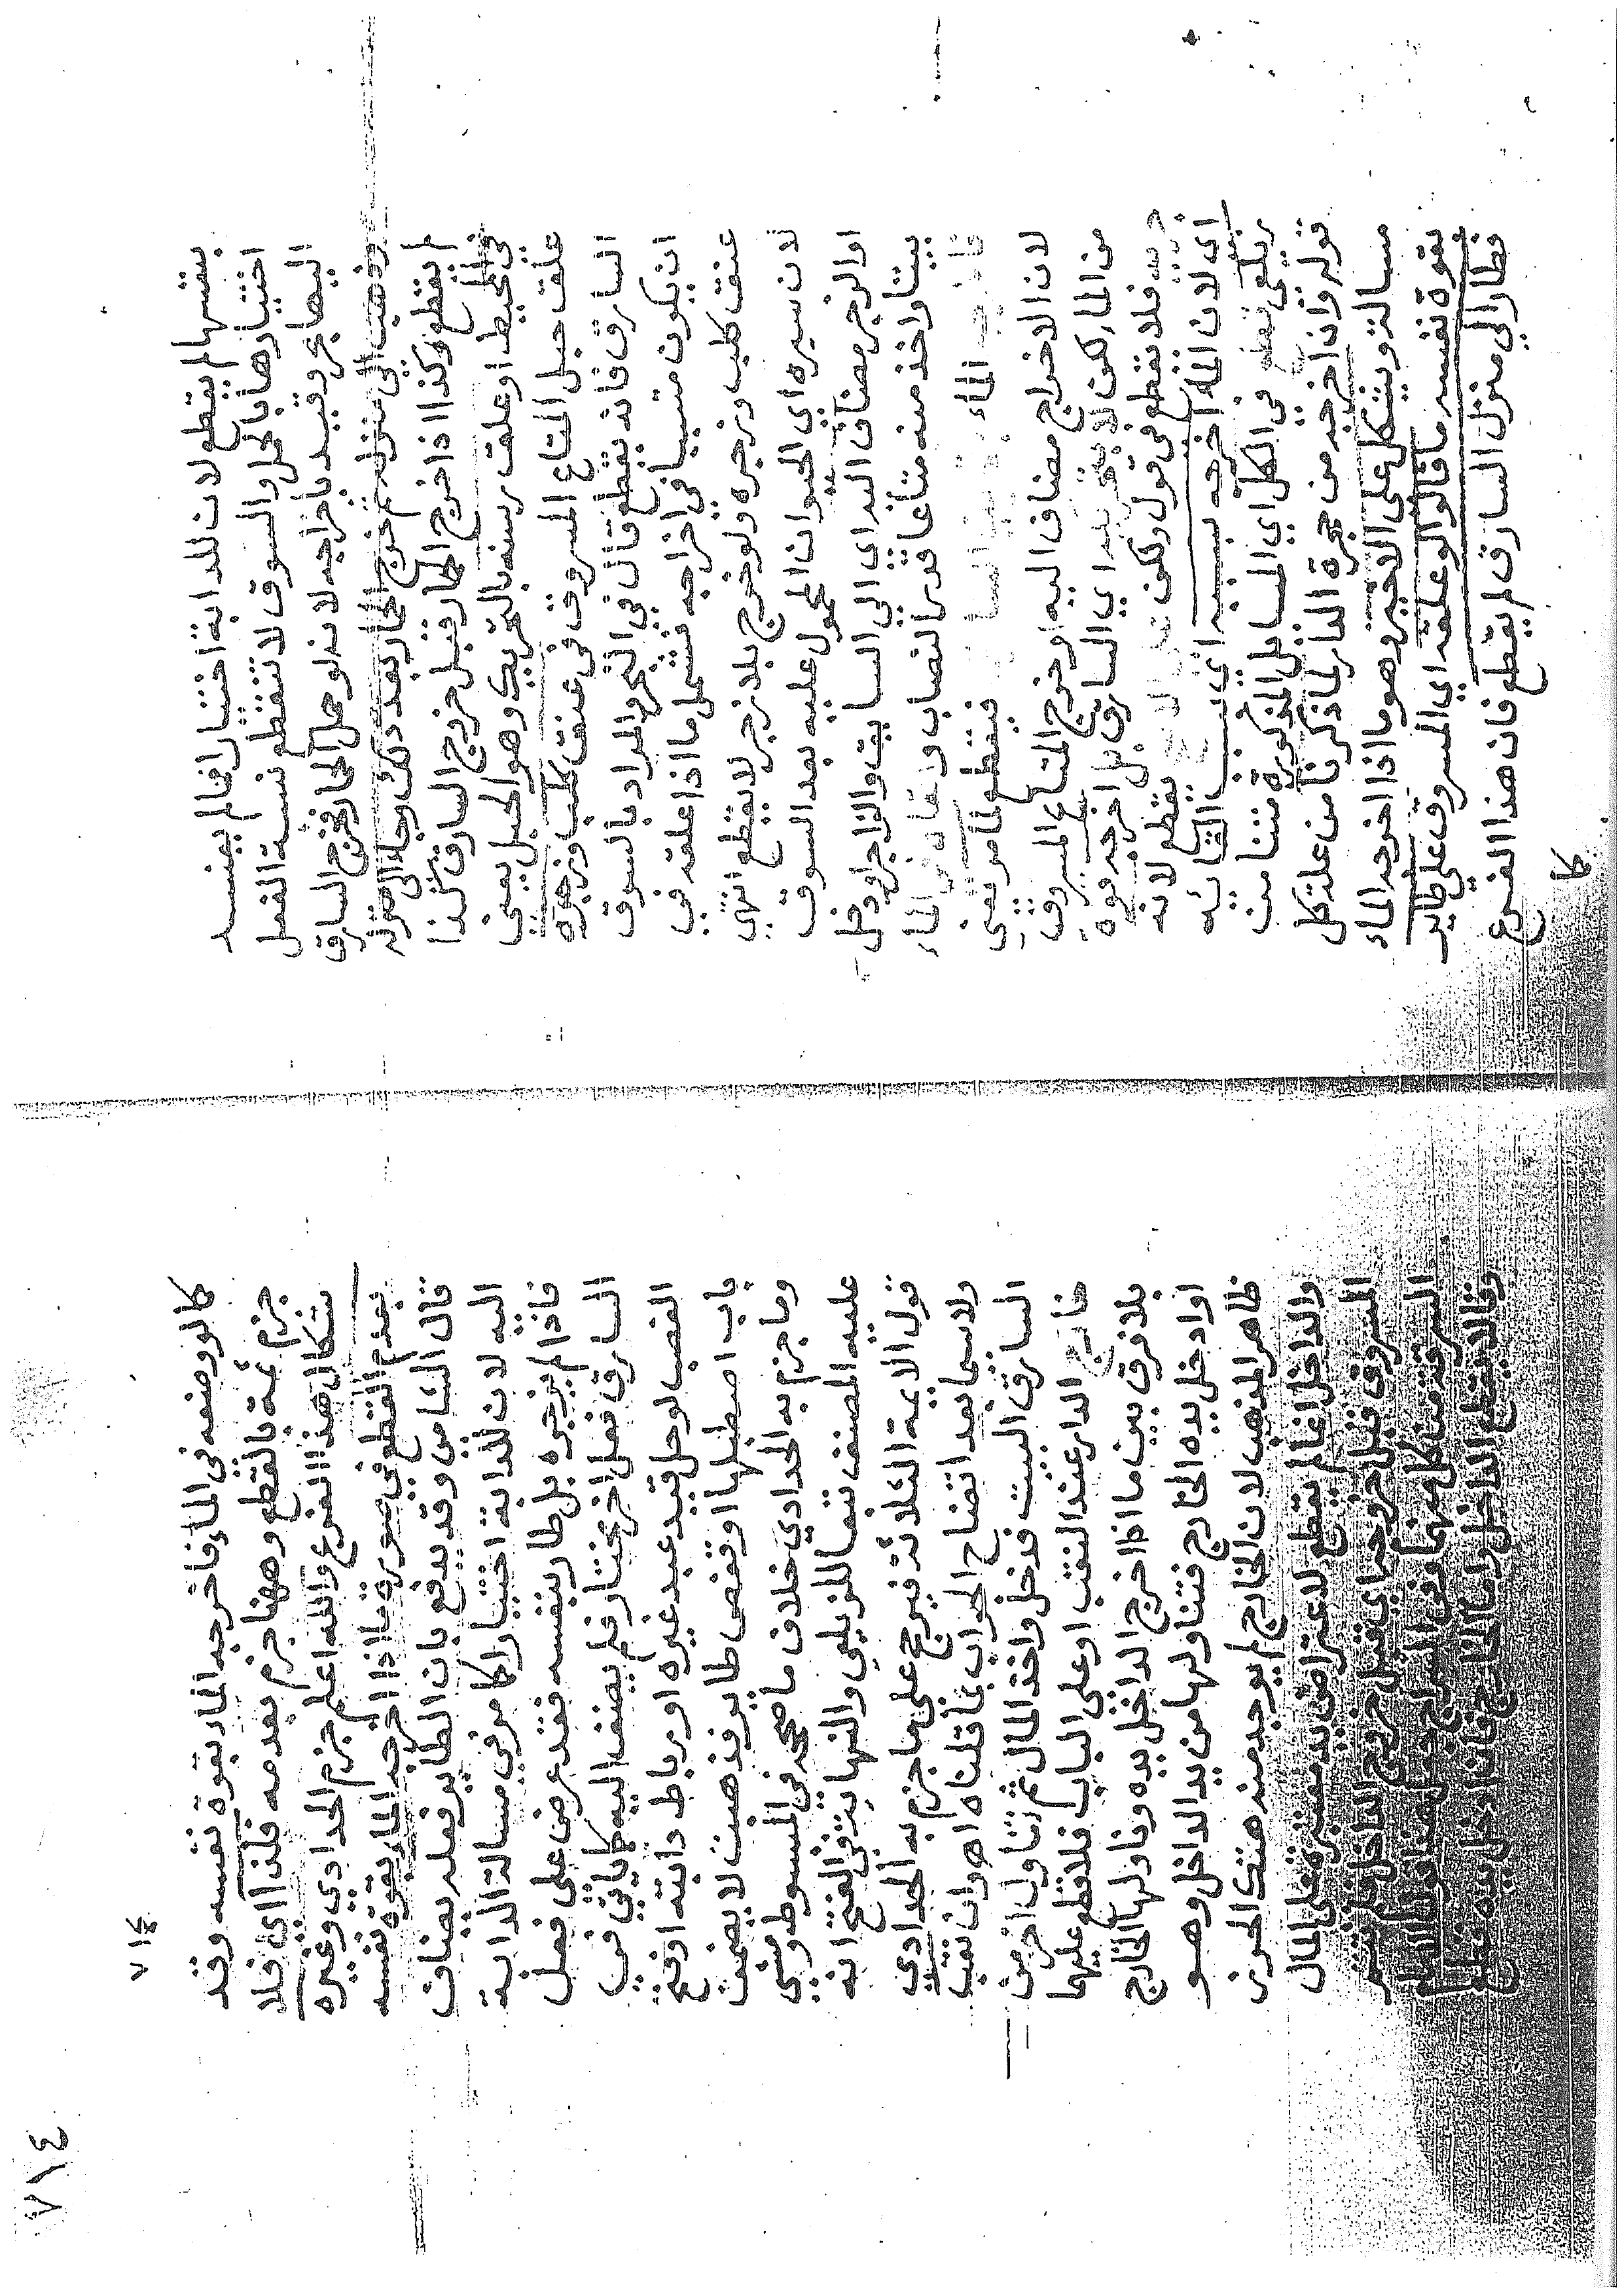 بنفسها لم يقطع لان للدابة اختيارا فما لم يفسد
اختيارها بالحمل والسوق لا تنقطع نسبة الفعل
اليها بحر وقيد باخراجه لانه لو حمل الحمار فخرج السارق
وذهب الى منزله ثم خرج الحمار بعد ذلك وجاء الى منزله
لم يقطع وكذا اذا خرج الحمار قبل خروج السارق كذا
في المحيط او علق رسنه بالتحريك وهو الحبل يعني
علق حبل المتاع المسروق في عنق كلب وزجره
السارق فانه يقطع قال في البحر والمراد بالسوق
ان يكون متسببا في اخراجه فشمل ما اذا علقه في
عنق كلب وزجره ولو خرج بلا زجر لا يقطع انتهى
لان سيره اي الحيوان المحمول عليه بعد السوق
او الزجر مضاف اليه اي الى السايق والزاجر او دخل
بيتا واخذ منه متاعا قدر النصاب والقاه في الماء
الماء فيقطع لما مر يعني
لان الاخراج مضاف اليه او خرج المتاع المسروق
من الماء لكن لا بتحريكه اي السارق بل اخرجه قوة
جريه فلا يقطع في قول ولكن الاصح يقطع لانه
اي لان الماء اخرجه بسببه اي بسبب القائه
زيلعي فيقطع في الكل اي المسايل المذكورة تنامن
قوله وان اخرجه من حجرة الدار لما ذكرنا من علة كل
مسالة ويشكل على الاخير وهو ما اذا اخرجه الماء
بقوة نفسه ما قالوا لو علقه اي المسروق على طاير
فطار الى منزل السارق لم يقطع فان هذا الفرع
كا
٧١٤
٧١٤
كالو وضعه في الماء فاخرجه الماء بقوة نفسه وقد
جزم ثمة بالقطع وههنا جزم بعدمه فلذا اي فلا
شكال هذا الفرع والله اعلم جزم الحدادي وغيره
بعدم القطع في صورة ما اذا اخرجه الماء بقوة نفسه
قال الشامي وقد يدفع بان الطاير فعله يضاف
اليه لان للدابة اختيارا كما مر في مسالة الدابة
فاذا لم يزجره بل طار بنفسه فقد عرض على فعل
السارق فعل اخر مختار فلم يضف اليه كما ياتي في
الغصب لو حل قيد عبد غيره او رباط دابته او فتح
باب اصطبلها او قفص طايره فذهبت لا يضمن
وما جزم به الحدادي خلاف ما صححه في المبسوط ومشى
عليه المصنف تبعا للزيلعي والنهاية وفي الفتح انه
قول الايمة الثلاثة فيرجح على ما جزم به الحدادي
ولا سيما بعد اتضاح الجواب بما قلناه اهـ وان نقب
السارق البيت فدخل واخذ المال ثم تناول اخر من
خارج الدار عند النقب او على الباب فلا قطع عليهما
بلا فرق بين ما اذا اخرج الداخل يده وناولها الخارج
او ادخل يده الخارج فتناولها من يد الداخل وهو
ظاهر المذهب لان الخارج لم يوجد منه هتك الحرز
والداخل انما لم يقطع لاعتراض يد معتبرة على المال
المسروق قبل خروجه اي قبل خروج الداخل فلم تتم
السرقة من كل منهما
وقالا يقطع الداخل واما الخارج فان ادخل يده قطع